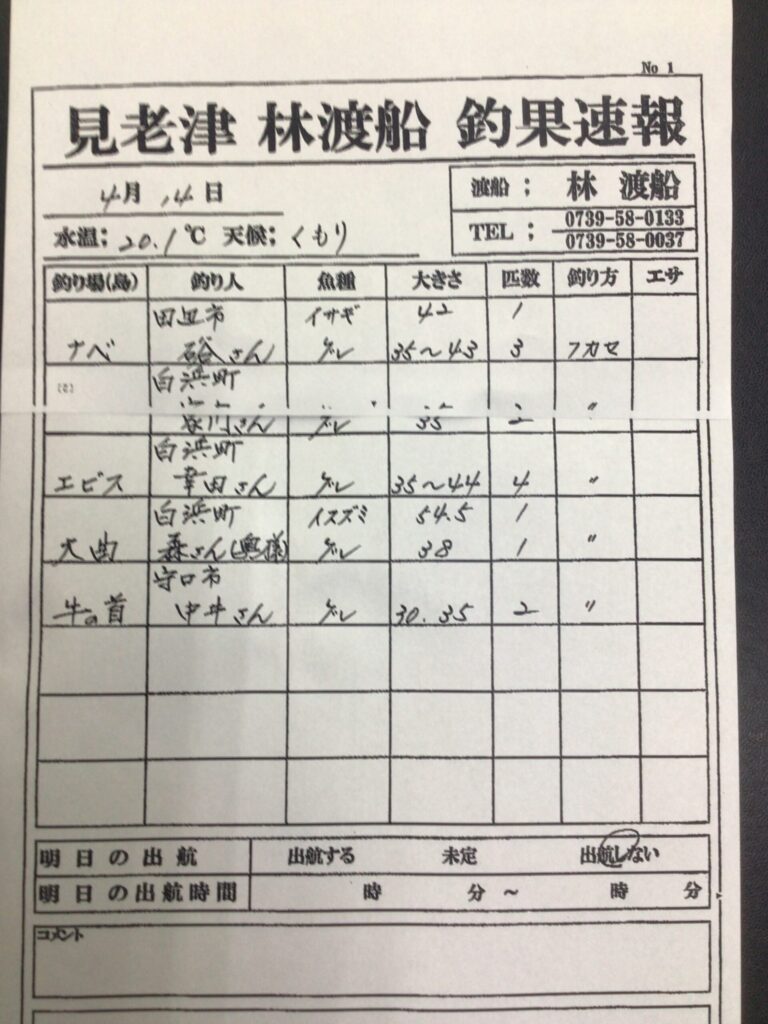 No 1
見老津 林渡船 釣果速報
4月 14日
渡船； 林 渡船
水温； 20.1℃ 天候； くもり
TEL； 0739-58-0133
0739-58-0037
釣り場(島) 釣り人 魚種 大きさ 匹数 釣り方 エサ
田辺市 イサギ 42 1
ナベ さん グレ 35～43 3 フカセ
白浜町
さん グレ 35 2 〃
白浜町
エビス 幸田さん グレ 35～44 4 〃
白浜町 イスズミ 54.5 1
大曲 森さん(奥様) グレ 38 1 〃
守口市
牛の首 中井さん グレ 30.35 2 〃
明日の出航 出航する 未定 出航しない
明日の出航時間 時 分 ～ 時 分
コメント